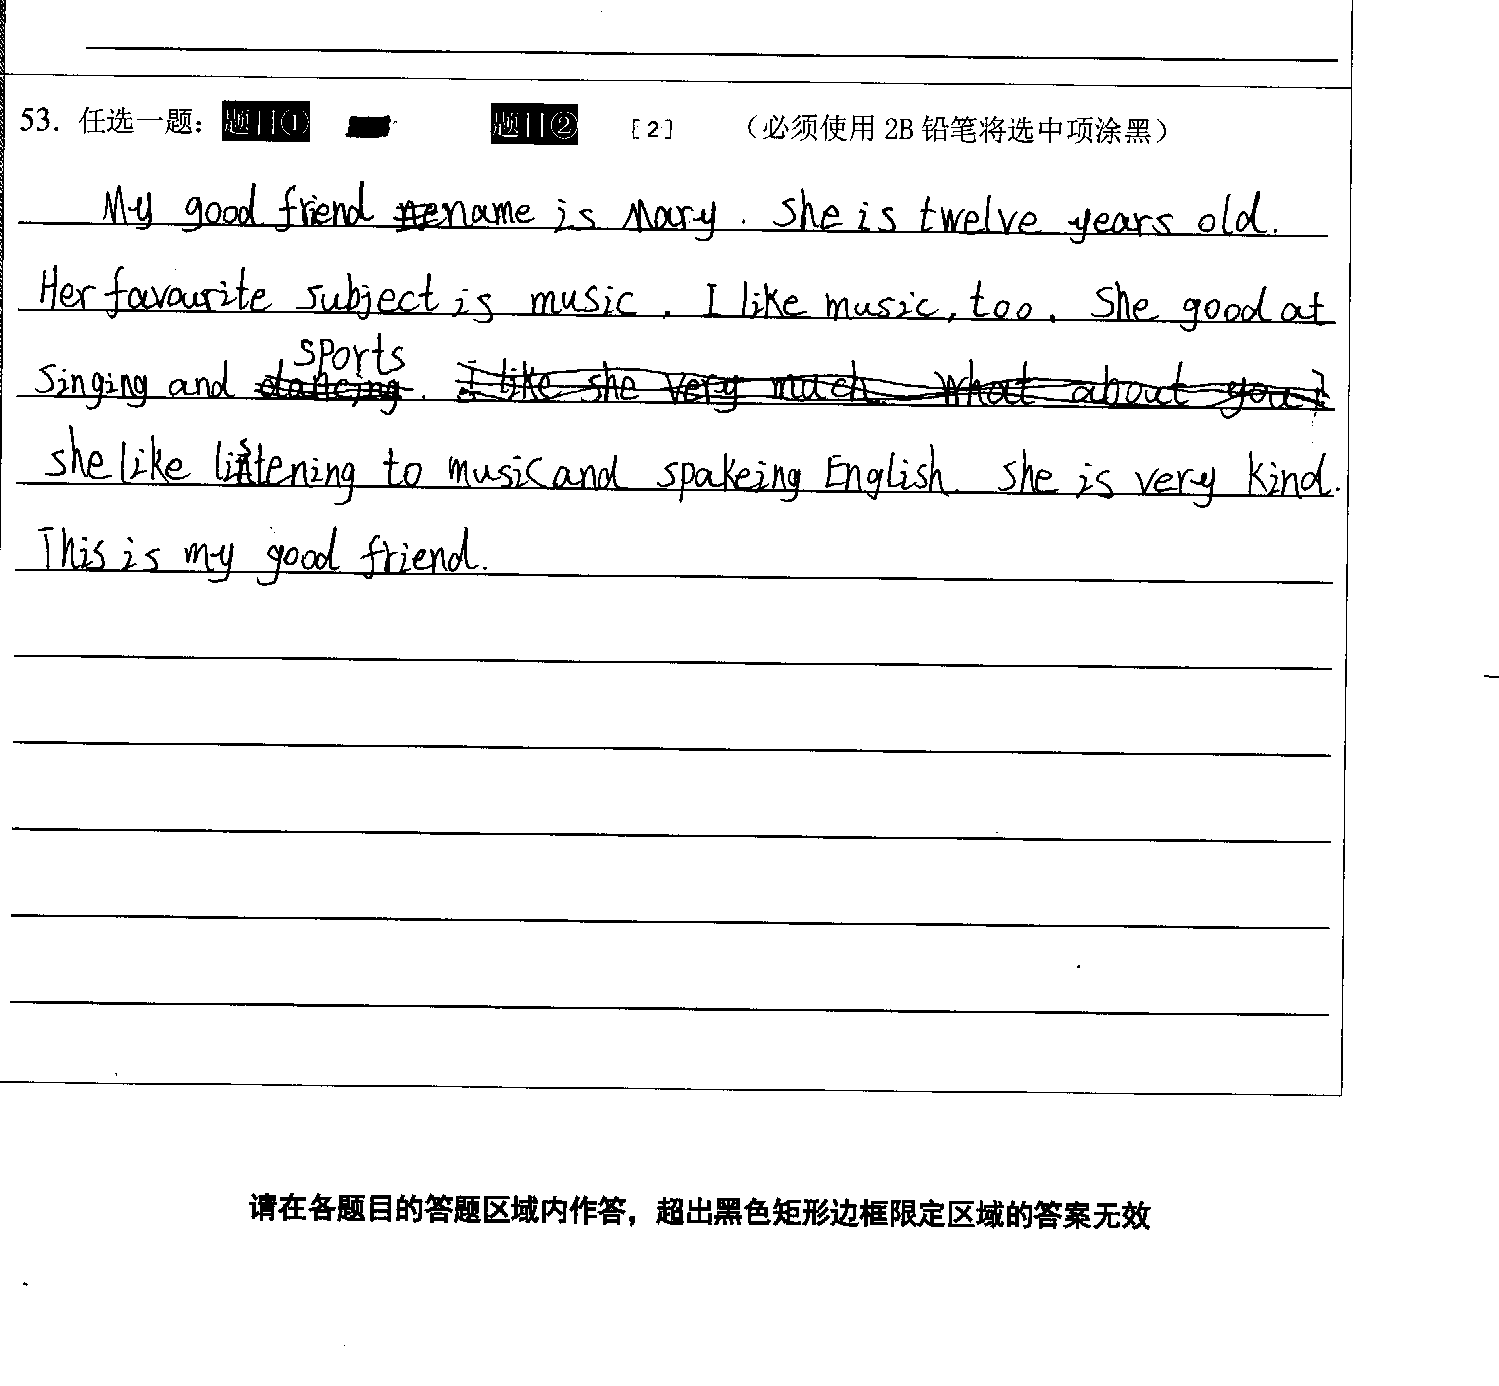 53. 任选一题： 题目① 题目② [2] （必须使用 2B 铅笔将选中项涂黑）
My good friend name is Mary. She is twelve years old.
Her favourite subject is music. I like music, too. She good at
sports
singing and dancing. I like she very much. What about you?
she like listening to music and spakeing English. she is very kind.
This is my good friend.
请在各题目的答题区域内作答，超出黑色矩形边框限定区域的答案无效